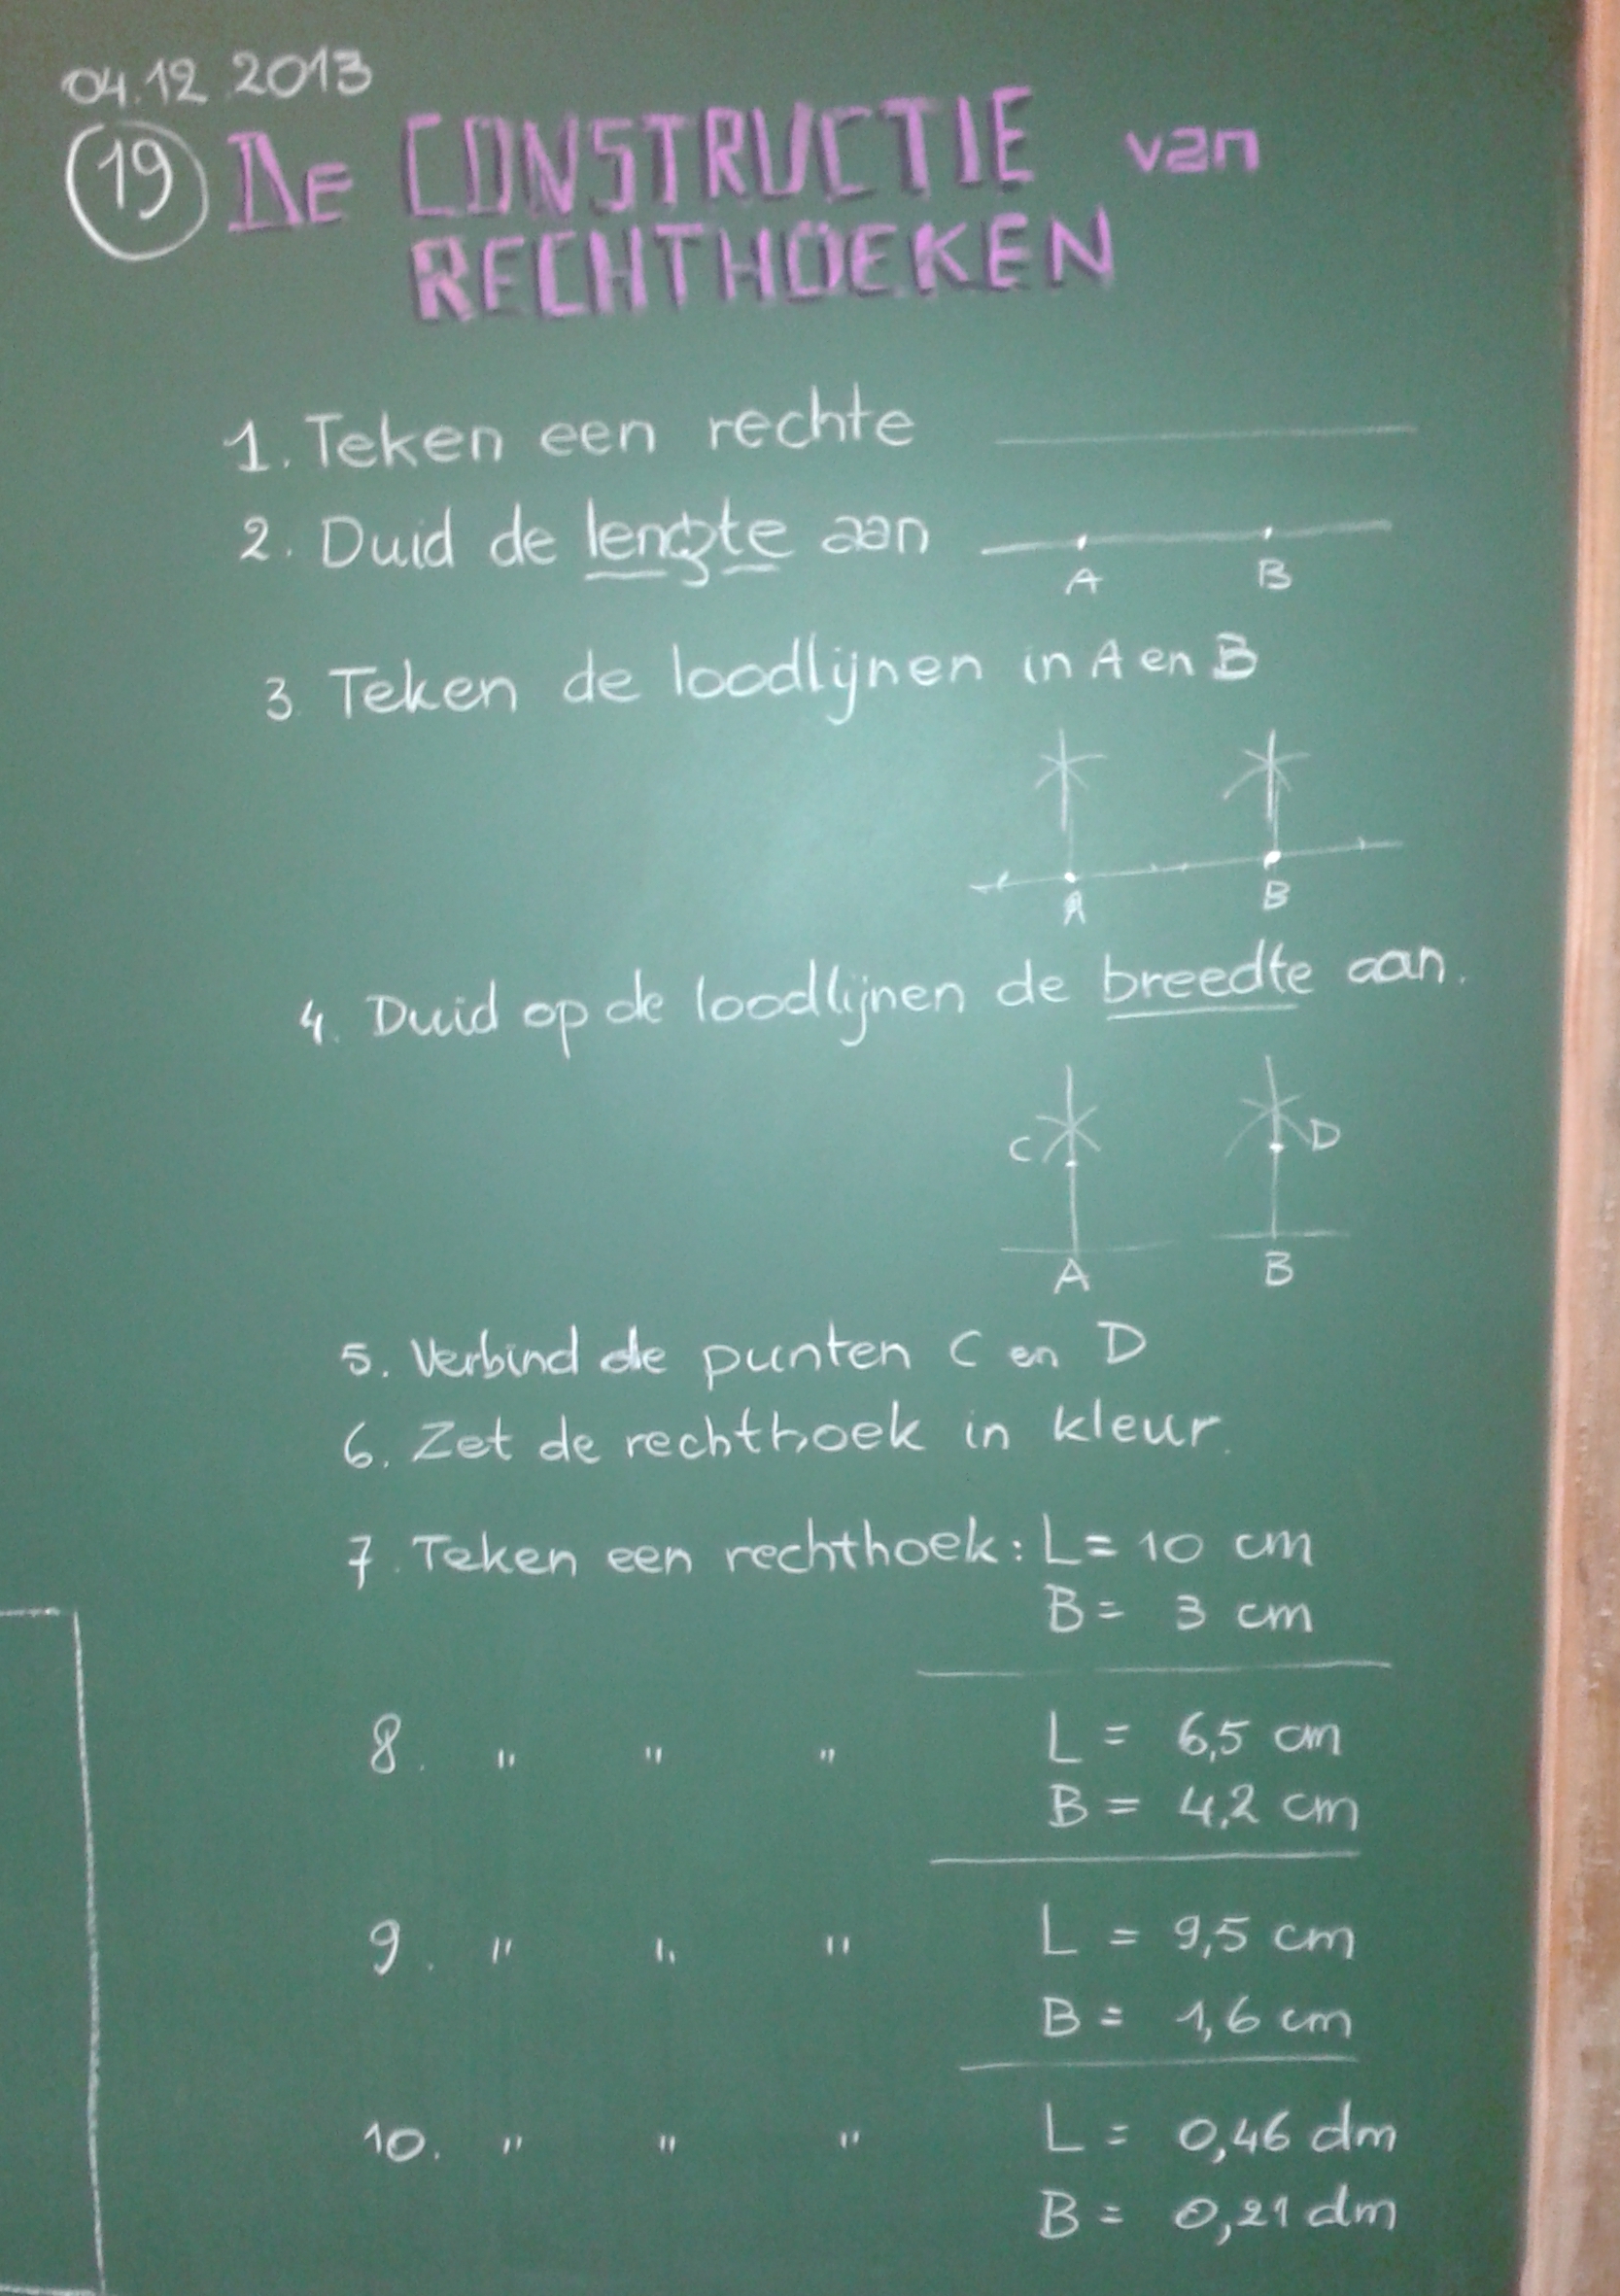 04.12.2013
19 De CONSTRUCTIE van
RECHTHOEKEN
1. Teken een rechte
2. Duid de lengte aan
A B
3. Teken de loodlijnen in A en B
A B
4. Duid op de loodlijnen de breedte aan.
C D
A B
5. Verbind de punten C en D
6. Zet de rechthoek in kleur.
7. Teken een rechthoek: L = 10 cm
B = 3 cm
8. " " " L = 6,5 cm
B = 4,2 cm
9. " " " L = 9,5 cm
B = 1,6 cm
10. " " " L = 0,46 dm
B = 0,21 dm